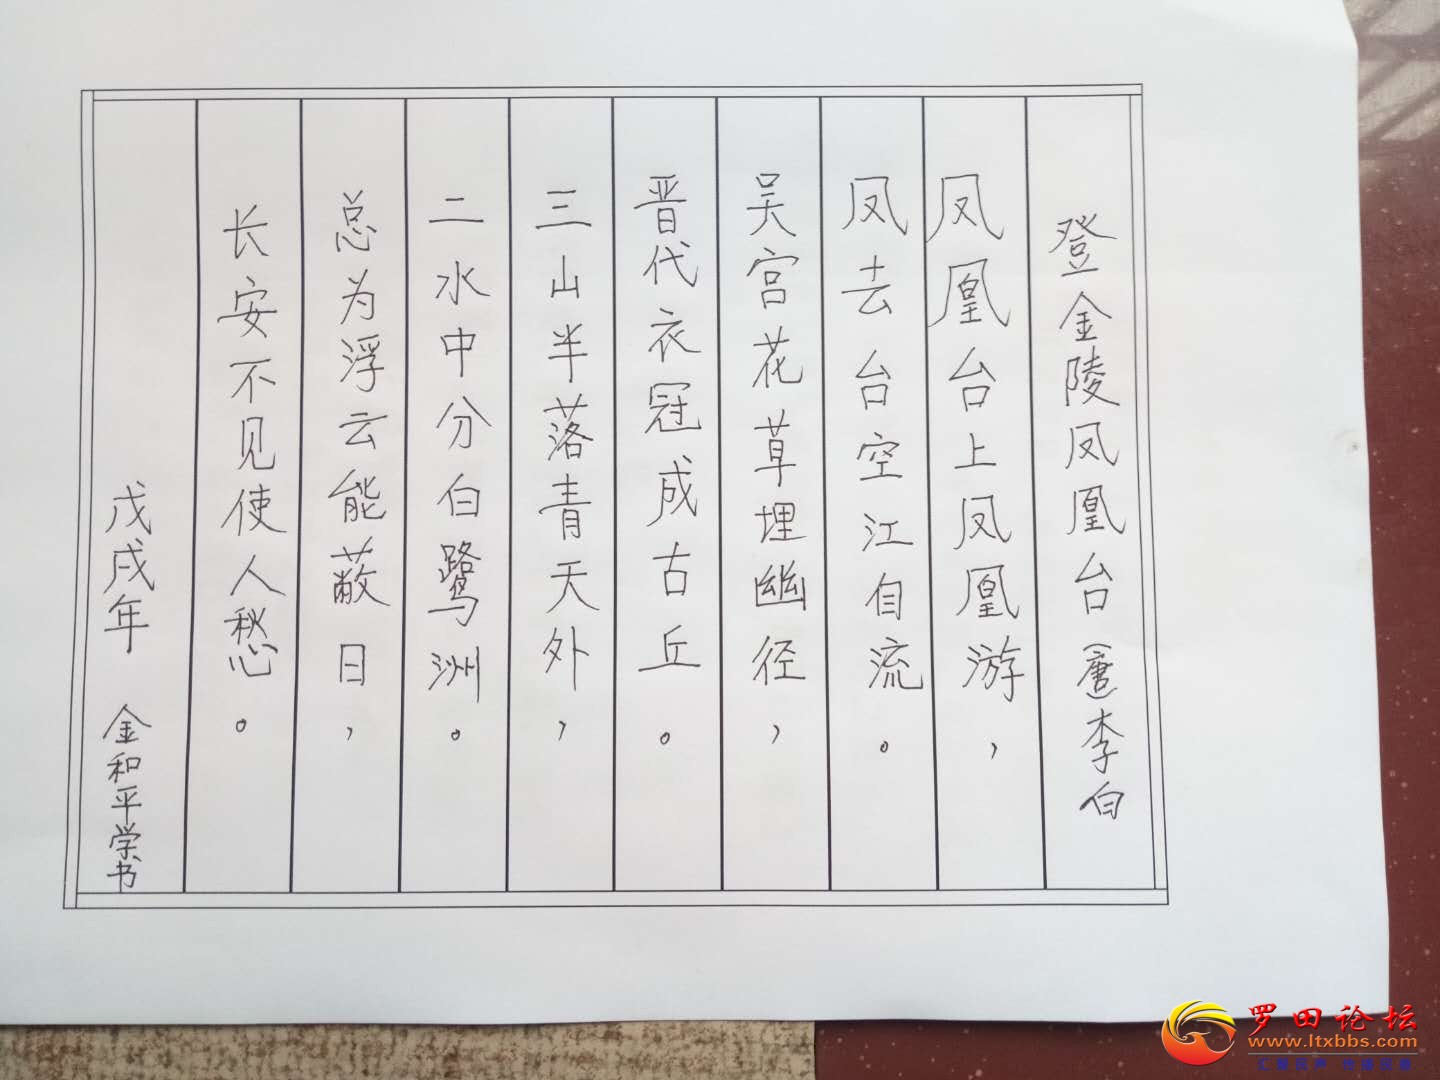 登金陵凤凰台（唐）李白
凤凰台上凤凰游，
凤去台空江自流。
吴宫花草埋幽径，
晋代衣冠成古丘。
三山半落青天外，
二水中分白鹭洲。
总为浮云能蔽日，
长安不见使人愁。
戊戌年 金和平学书
罗田论坛
www.ltxbbs.com